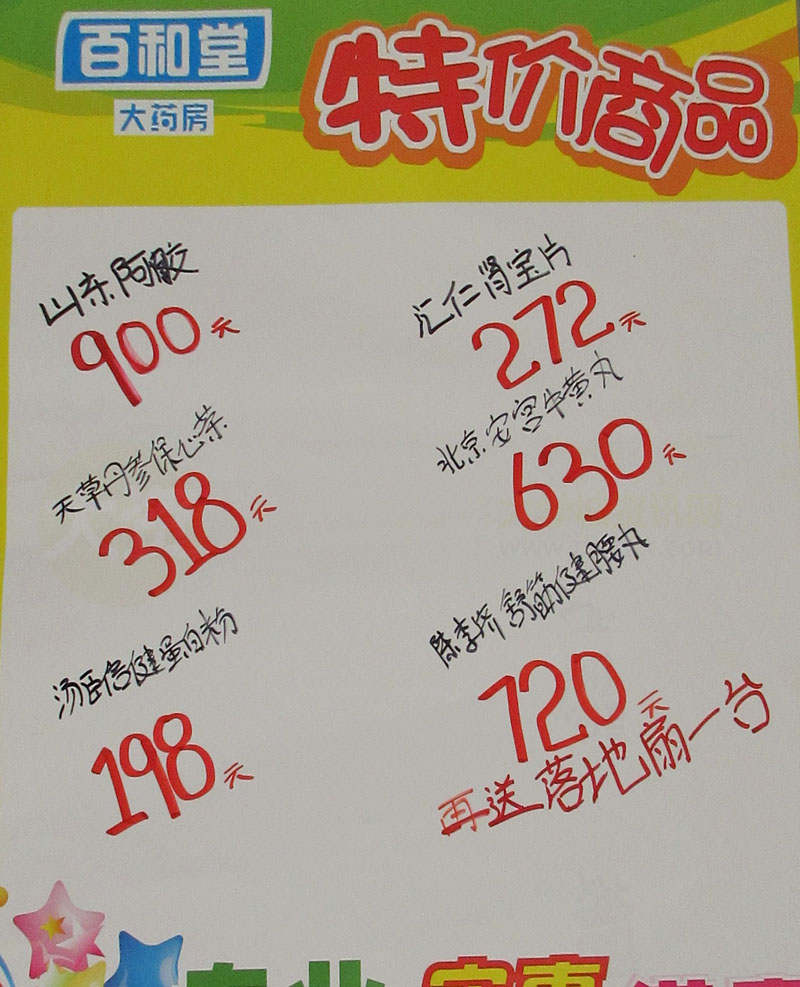 百和堂
大药房
特价商品
山东阿胶
900元
汇仁肾宝片
272元
天草丹参保心茶
318元
北京安宫牛黄丸
630元
汤臣倍健蛋白粉
198元
陈李济舒筋健腰丸
720元
再送落地扇一台